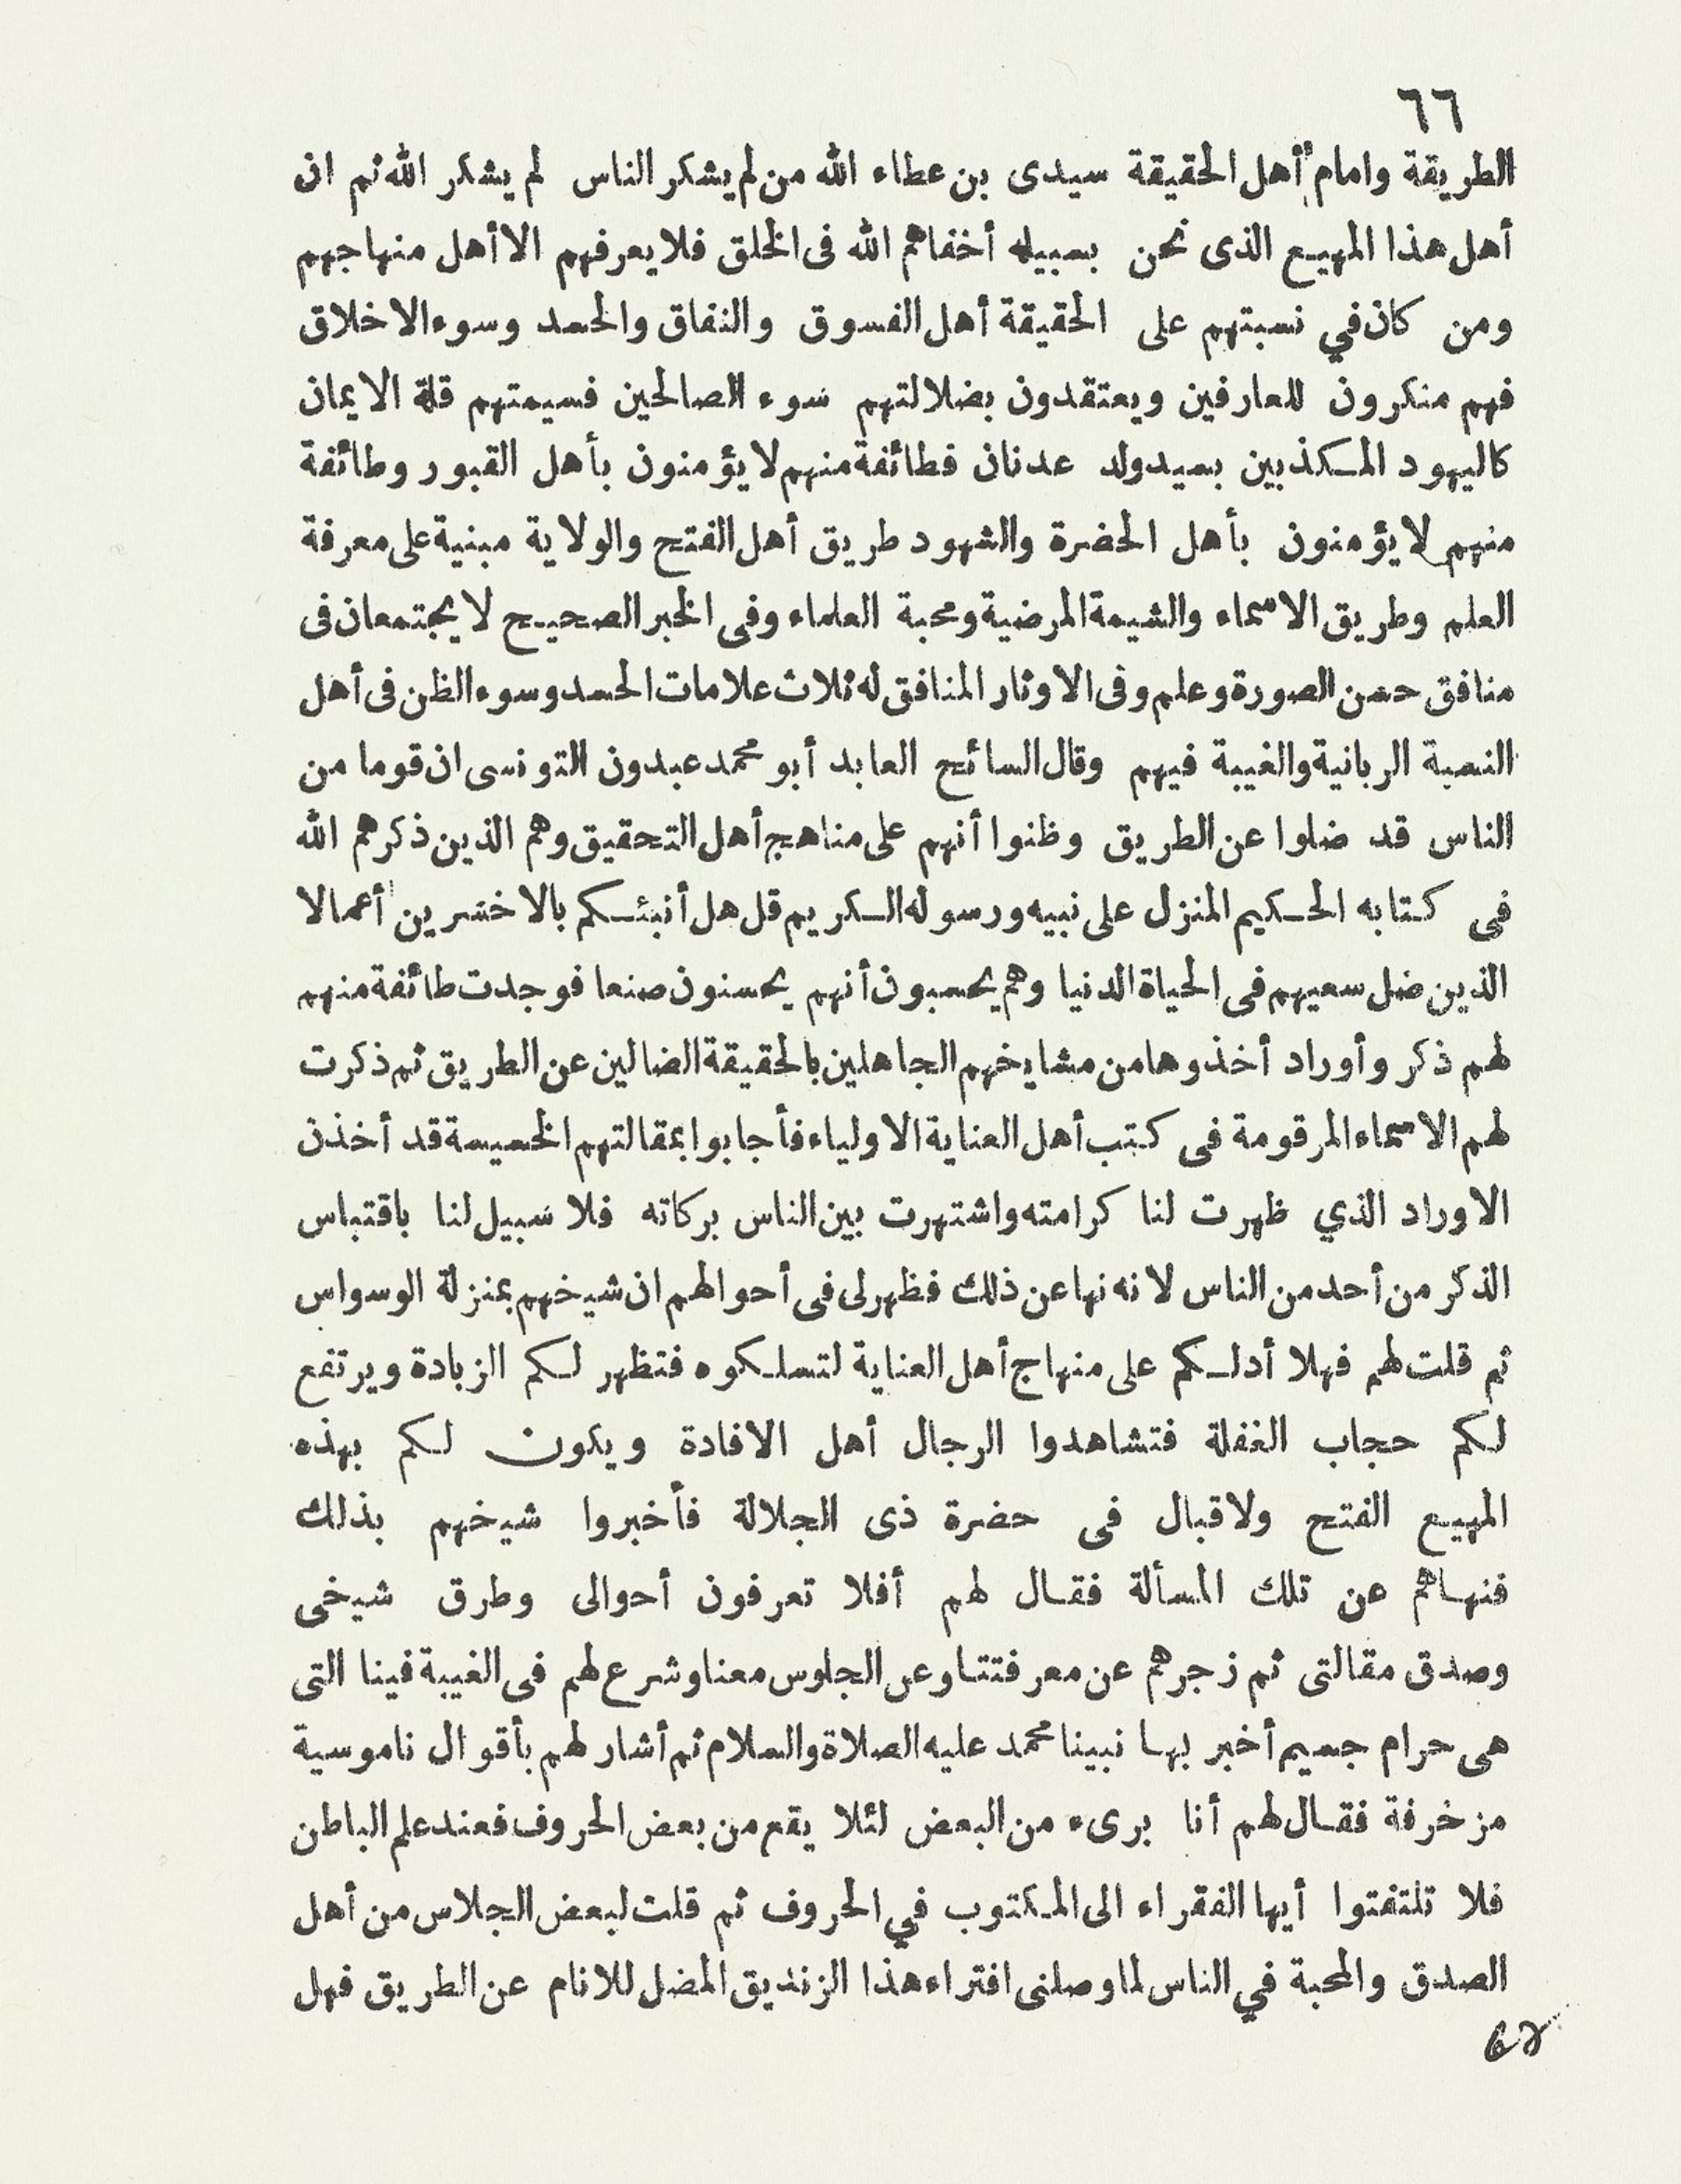 ٦٦
الطريقة وامام أهل الحقيقة سيدى بن عطاء الله من لم يشكر الناس لم يشكر الله ثم ان
أهل هذا المهيع الذى نحن بسبيله أخفاهم الله فى الخلق فلا يعرفهم الا أهل منهاجهم
ومن كان في نسبتهم على الحقيقة أهل الفسوق والنفاق والحسد وسوء الاخلاق
فهم منكرون للعارفين ويعتقدون بضلالتهم سوء الصالحين فسيمتهم قلة الايمان
كاليهود المكذبين بسيد ولد عدنان فطائفة منهم لا يؤمنون بأهل القبور وطائفة
منهم لا يؤمنون بأهل الحضرة والشهود طريق أهل الفتح والولاية مبنية على معرفة
العلم وطريق الاسماء والشيمة المرضية ومحبة العلماء وفى الخبر الصحيح لا يجتمعان فى
منافق حسن الصورة وعلم وفى الاوثار المنافق له ثلاث علامات الحسد وسوء الظن فى أهل
النسبة الربانية والغيبة فيهم وقال السائح العابد أبو محمد عبدون التونسى ان قوما من
الناس قد ضلوا عن الطريق وظنوا أنهم على مناهج أهل التحقيق وهم الذين ذكرهم الله
فى كتابه الحكيم المنزل على نبيه ورسوله الكريم قل هل أنبئكم بالاخسرين أعمالا
الذين ضل سعيهم فى الحياة الدنيا وهم يحسبون أنهم يحسنون صنعا فوجدت طائفة منهم
لهم ذكر وأوراد أخذوها من مشايخهم الجاهلين بالحقيقة الضالين عن الطريق ثم ذكرت
لهم الاسماء المرقومة فى كتب أهل العناية الاولياء فأجابوا بمقالتهم الخسيسة قد أخذن
الاوراد الذي ظهرت لنا كرامته واشتهرت بين الناس بركاته فلا سبيل لنا باقتباس
الذكر من أحد من الناس لانه نها عن ذلك فظهر لى فى أحوالهم ان شيخهم بمنزلة الوسواس
ثم قلت لهم فهلا أدلكم على منهاج أهل العناية لتسلكوه فتظهر لكم الزيادة ويرتفع
لكم حجاب الغفلة فتشاهدوا الرجال أهل الافادة ويكون لكم بهذه
المهيع الفتح ولاقبال فى حضرة ذى الجلالة فأخبروا شيخهم بذلك
فنهاهم عن تلك المسألة فقال لهم أفلا تعرفون أحوالى وطرق شيخى
وصدق مقالتى ثم زجرهم عن معرفتتا وعن الجلوس معنا وشرع لهم فى الغيبة فينا التى
هى حرام جسيم أخبر بها نبينا محمد عليه الصلاة والسلام ثم أشار لهم بأقوال ناموسية
مزخرفة فقال لهم أنا برىء من البعض لئلا يقع من بعض الحروف فعند علم الباطن
فلا تلتفتوا أيها الفقراء الى المكتوب في الحروف ثم قلت لبعض الجلاس من أهل
الصدق والمحبة في الناس لما وصلنى افتراء هذا الزنديق المضل للانام عن الطريق فهل